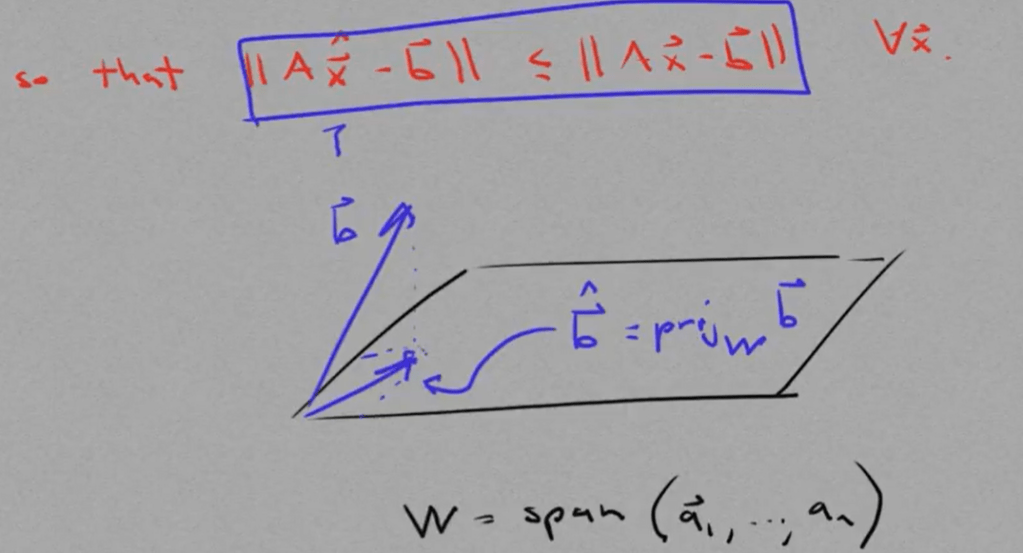 so that ||Ax̂⃗ - b⃗|| ≤ ||Ax⃗ - b⃗|| ∀x⃗.
b⃗
b̂⃗ = proj_W b⃗
W = span (a⃗₁, ..., aₙ)